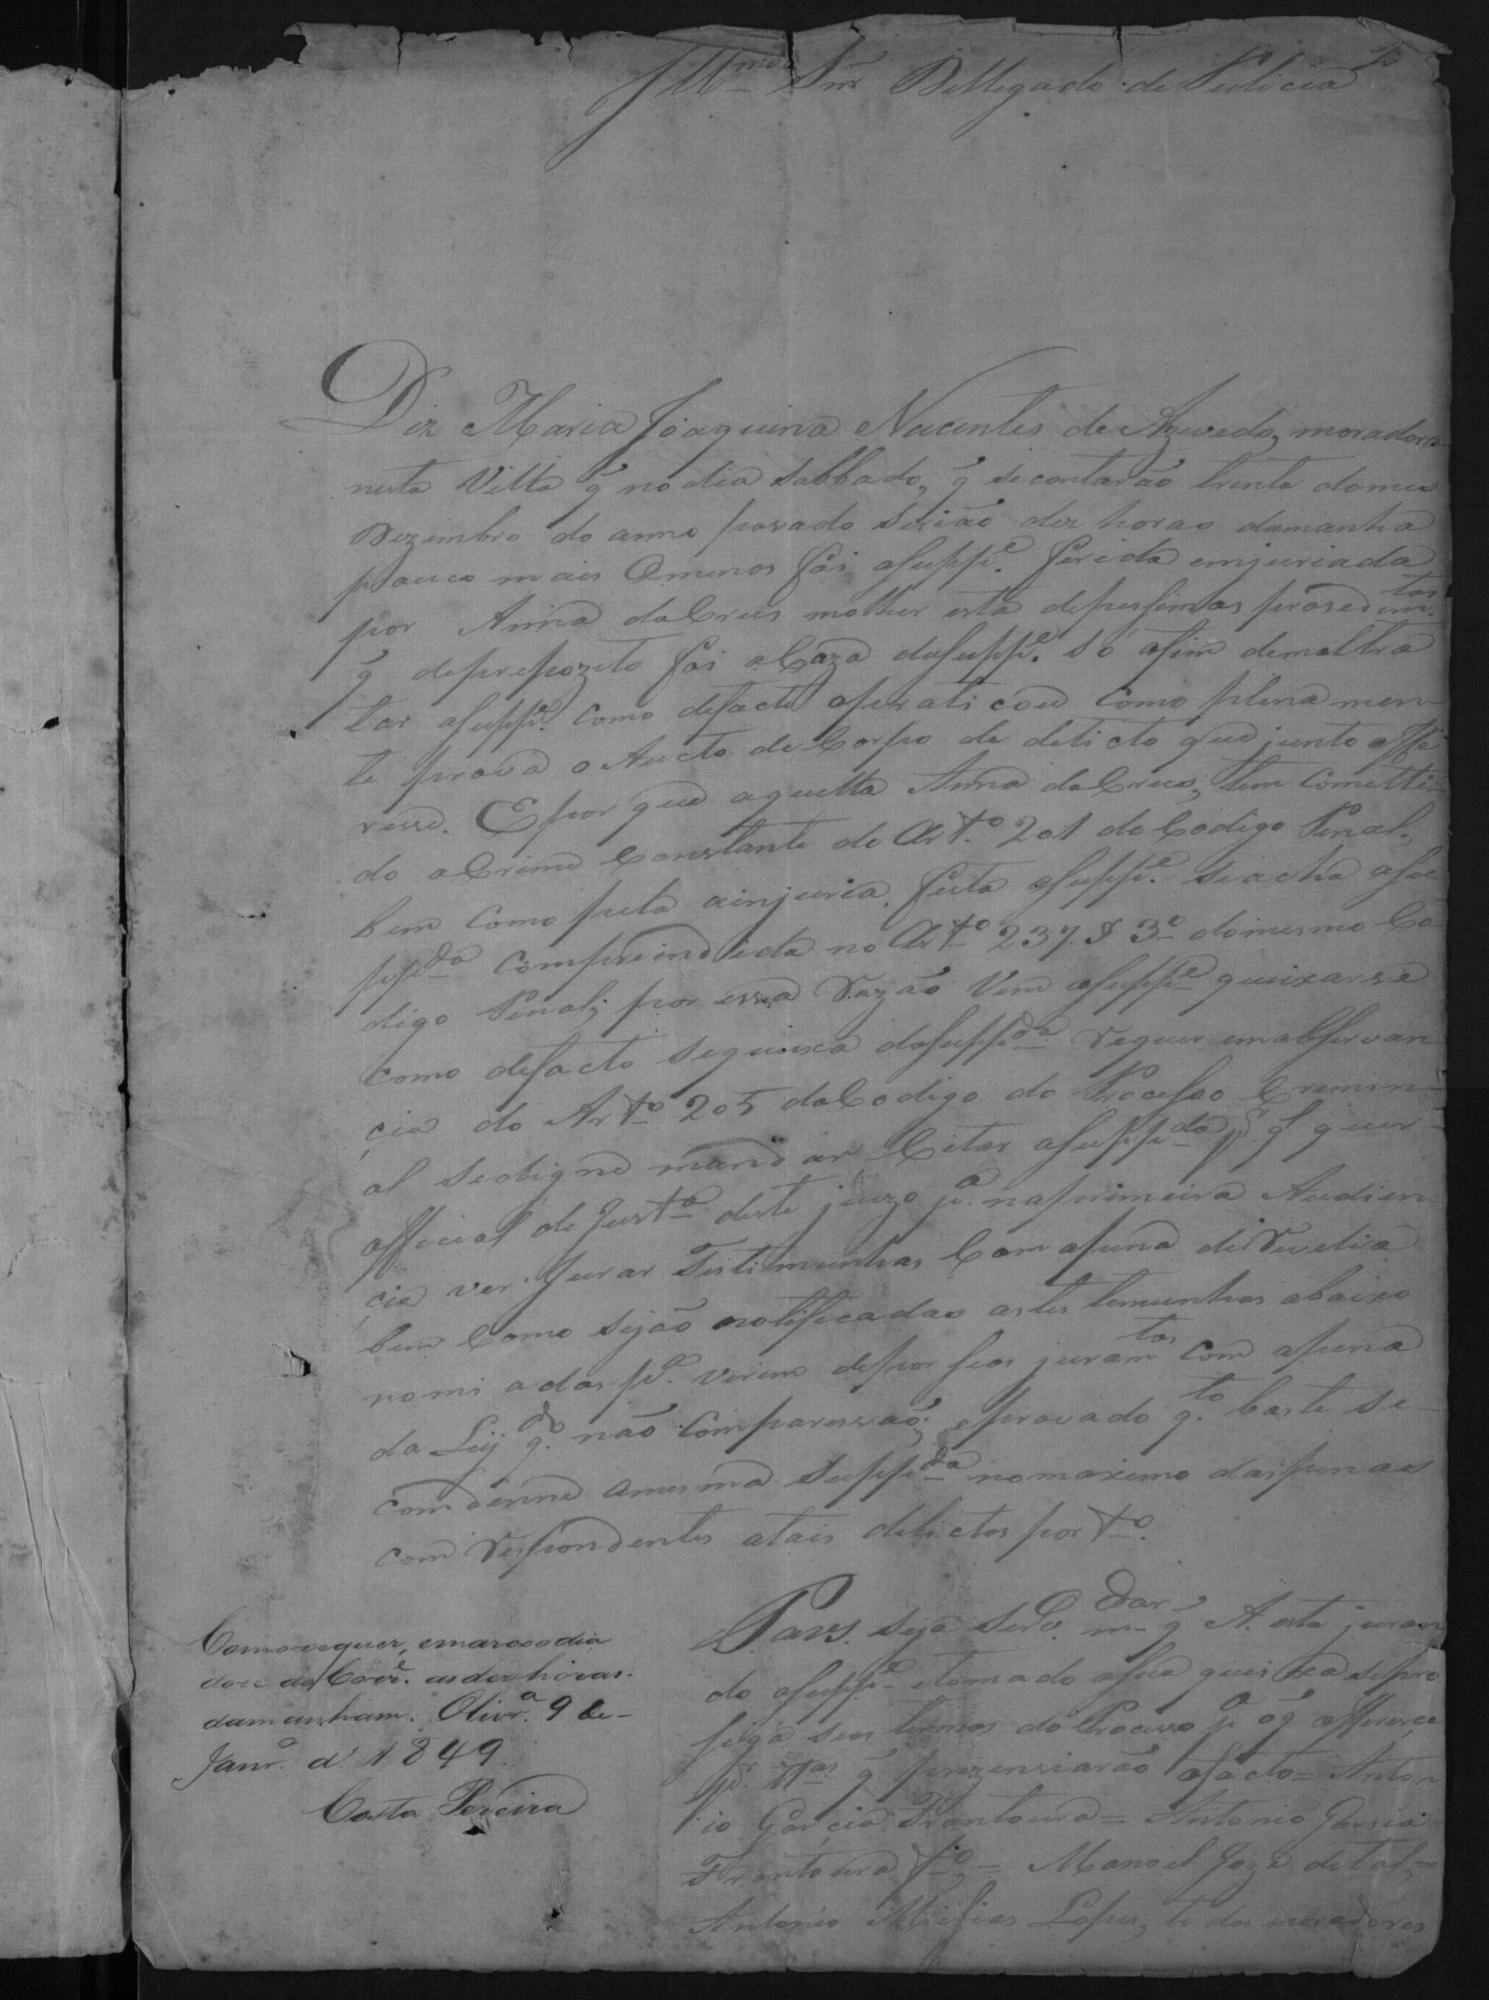 Illmo Snr Dellegado de Pulicia
Diz Maria Joaquina Nacentes de Azevedo, moradora
nesta Villa q̃ no dia Sabbado, q̃ se contarão trinta do mes
Dezembro do anno passado serião dez horas damanha
pouco mais Omenos foi asuppe. ferida einjuriada
por Anna daCrus molher esta depessimos prosedimtos
q̃ deprepozito foi aCaza dasuppe. só afim demaltra
tar asuppe. como defacto apraticou como plenamen-
te prova o Aucto de Corpo de delicto que junto offe
resse. Epor que aquella Anna daCrus, tem Cometti-
do oCrime Constante do Arto. 201 do Codigo Penal,
bem como pela ainjuria, feita asuppe. seacha asu
ppda Compreindida no Arto 237. § 3º domesmo Co
digo Penal; por essa Razão Vem asuppe queixarse
como defacto sequeixa dasuppda requer emobservan
cia do Arto 205 doCodigo do Processo Crimin-
al sedigne mandar Citar asuppda pr ql quer
official de Justa deste juizo pa. naprimeira Audien
cia ver jurar Testimunhas Com apena deRevelia
bem Como sejão notificadas astestemunhas abaixo
nomiadas pa. virem depor seos juramtos com apena
da Leij qdo não Comparessão; eprovado qto baste se
comdenne amesma Suppda nomaximo daspenas
comRespondentes atais delictos porto.
Para VS. seja Servo. mdar q̃ A. esta juran
do asuppe etomado asua queixa sepro
siga seos termos do Processo pa oq̃ offeresse
pr. Ttas. q̃ prezensiarão ofacto = Anton
io Garcia Frontoura = Antonio Garcia
Frontoura fo. = Manoel Joze detal =
Antonio Messias Lopes, todos moradores
Como requer, emarco odia
doze do Corre. asdez horas
damanham. Olivra 9 de
Janro. d' 1849
Costa Pereira